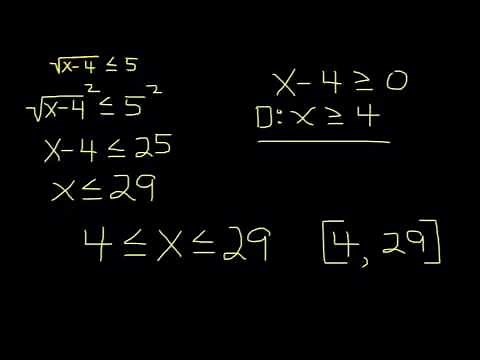 √x-4 ≤ 5
√x-4² ≤ 5²
x-4 ≤ 25
x ≤ 29
x-4 ≥ 0
D: x ≥ 4
4 ≤ x ≤ 29 [4, 29]